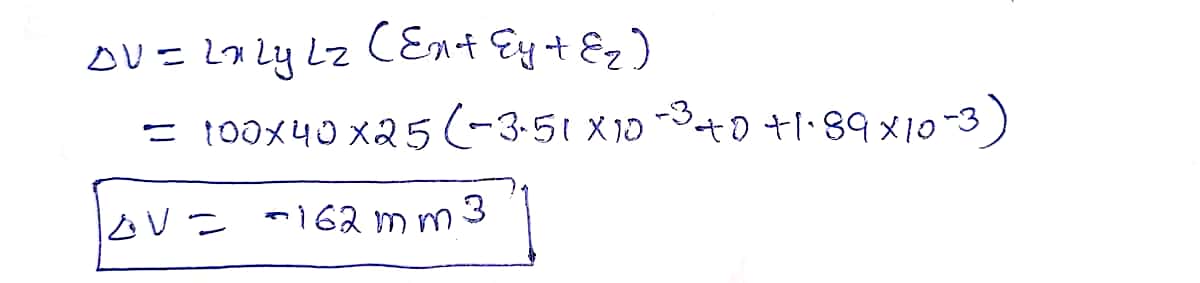 ΔV = Lx Ly Lz (εx + εy + εz)
= 100×40×25 (-3.51 × 10 -3 + 0 + 1.89 × 10 -3)
ΔV = -162 mm3